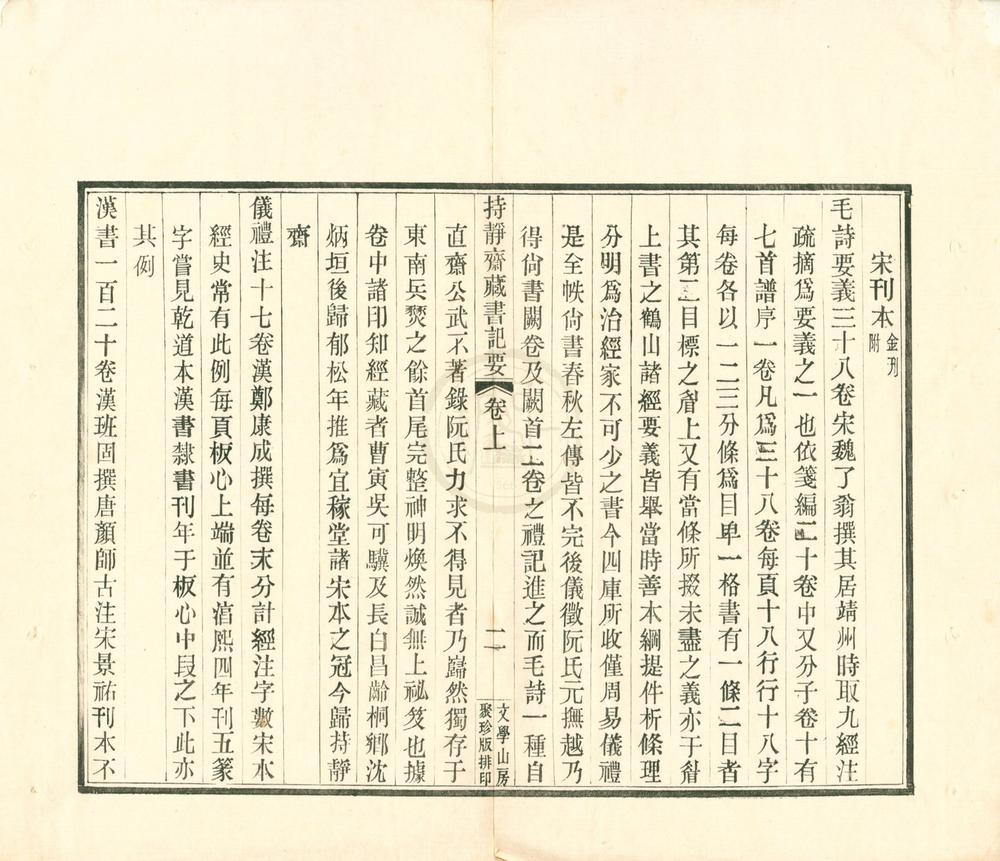 宋刊本金刊附
毛詩要義三十八卷宋魏了翁撰其居靖州時取九經注
疏摘爲要義之一也依箋編二十卷中又分子卷十有
七首譜序一卷凡爲三十八卷每頁十八行行十八字
每卷各以一二三分條爲目卑一格書有一條二目者
其第二目標之眉上又有當條所掇未盡之義亦于眉
上書之鶴山諸經要義皆舉當時善本綱提件析條理
分明爲治經家不可少之書今四庫所收僅周易儀禮
是全帙尙書春秋左傳皆不完後儀徵阮氏元撫越乃
得尙書闕卷及闕首二卷之禮記進之而毛詩一種自
持靜齋藏書記要 卷上 一
文學山房
聚珍版排印
直齋公武不著錄阮氏力求不得見者乃巋然獨存于
東南兵燹之餘首尾完整神明煥然誠無上祕笈也據
卷中諸印知經藏者曹寅吳可驥及長白昌齡桐鄉沈
炳垣後歸郁松年推爲宜稼堂諸宋本之冠今歸持靜
齋
儀禮注十七卷漢鄭康成撰每卷末分計經注字數宋本
經史常有此例每頁板心上端並有湻熙四年刊五篆
字嘗見乾道本漢書隸書刊年于板心中段之下此亦
其例
漢書一百二十卷漢班固撰唐顏師古注宋景祐刊本不